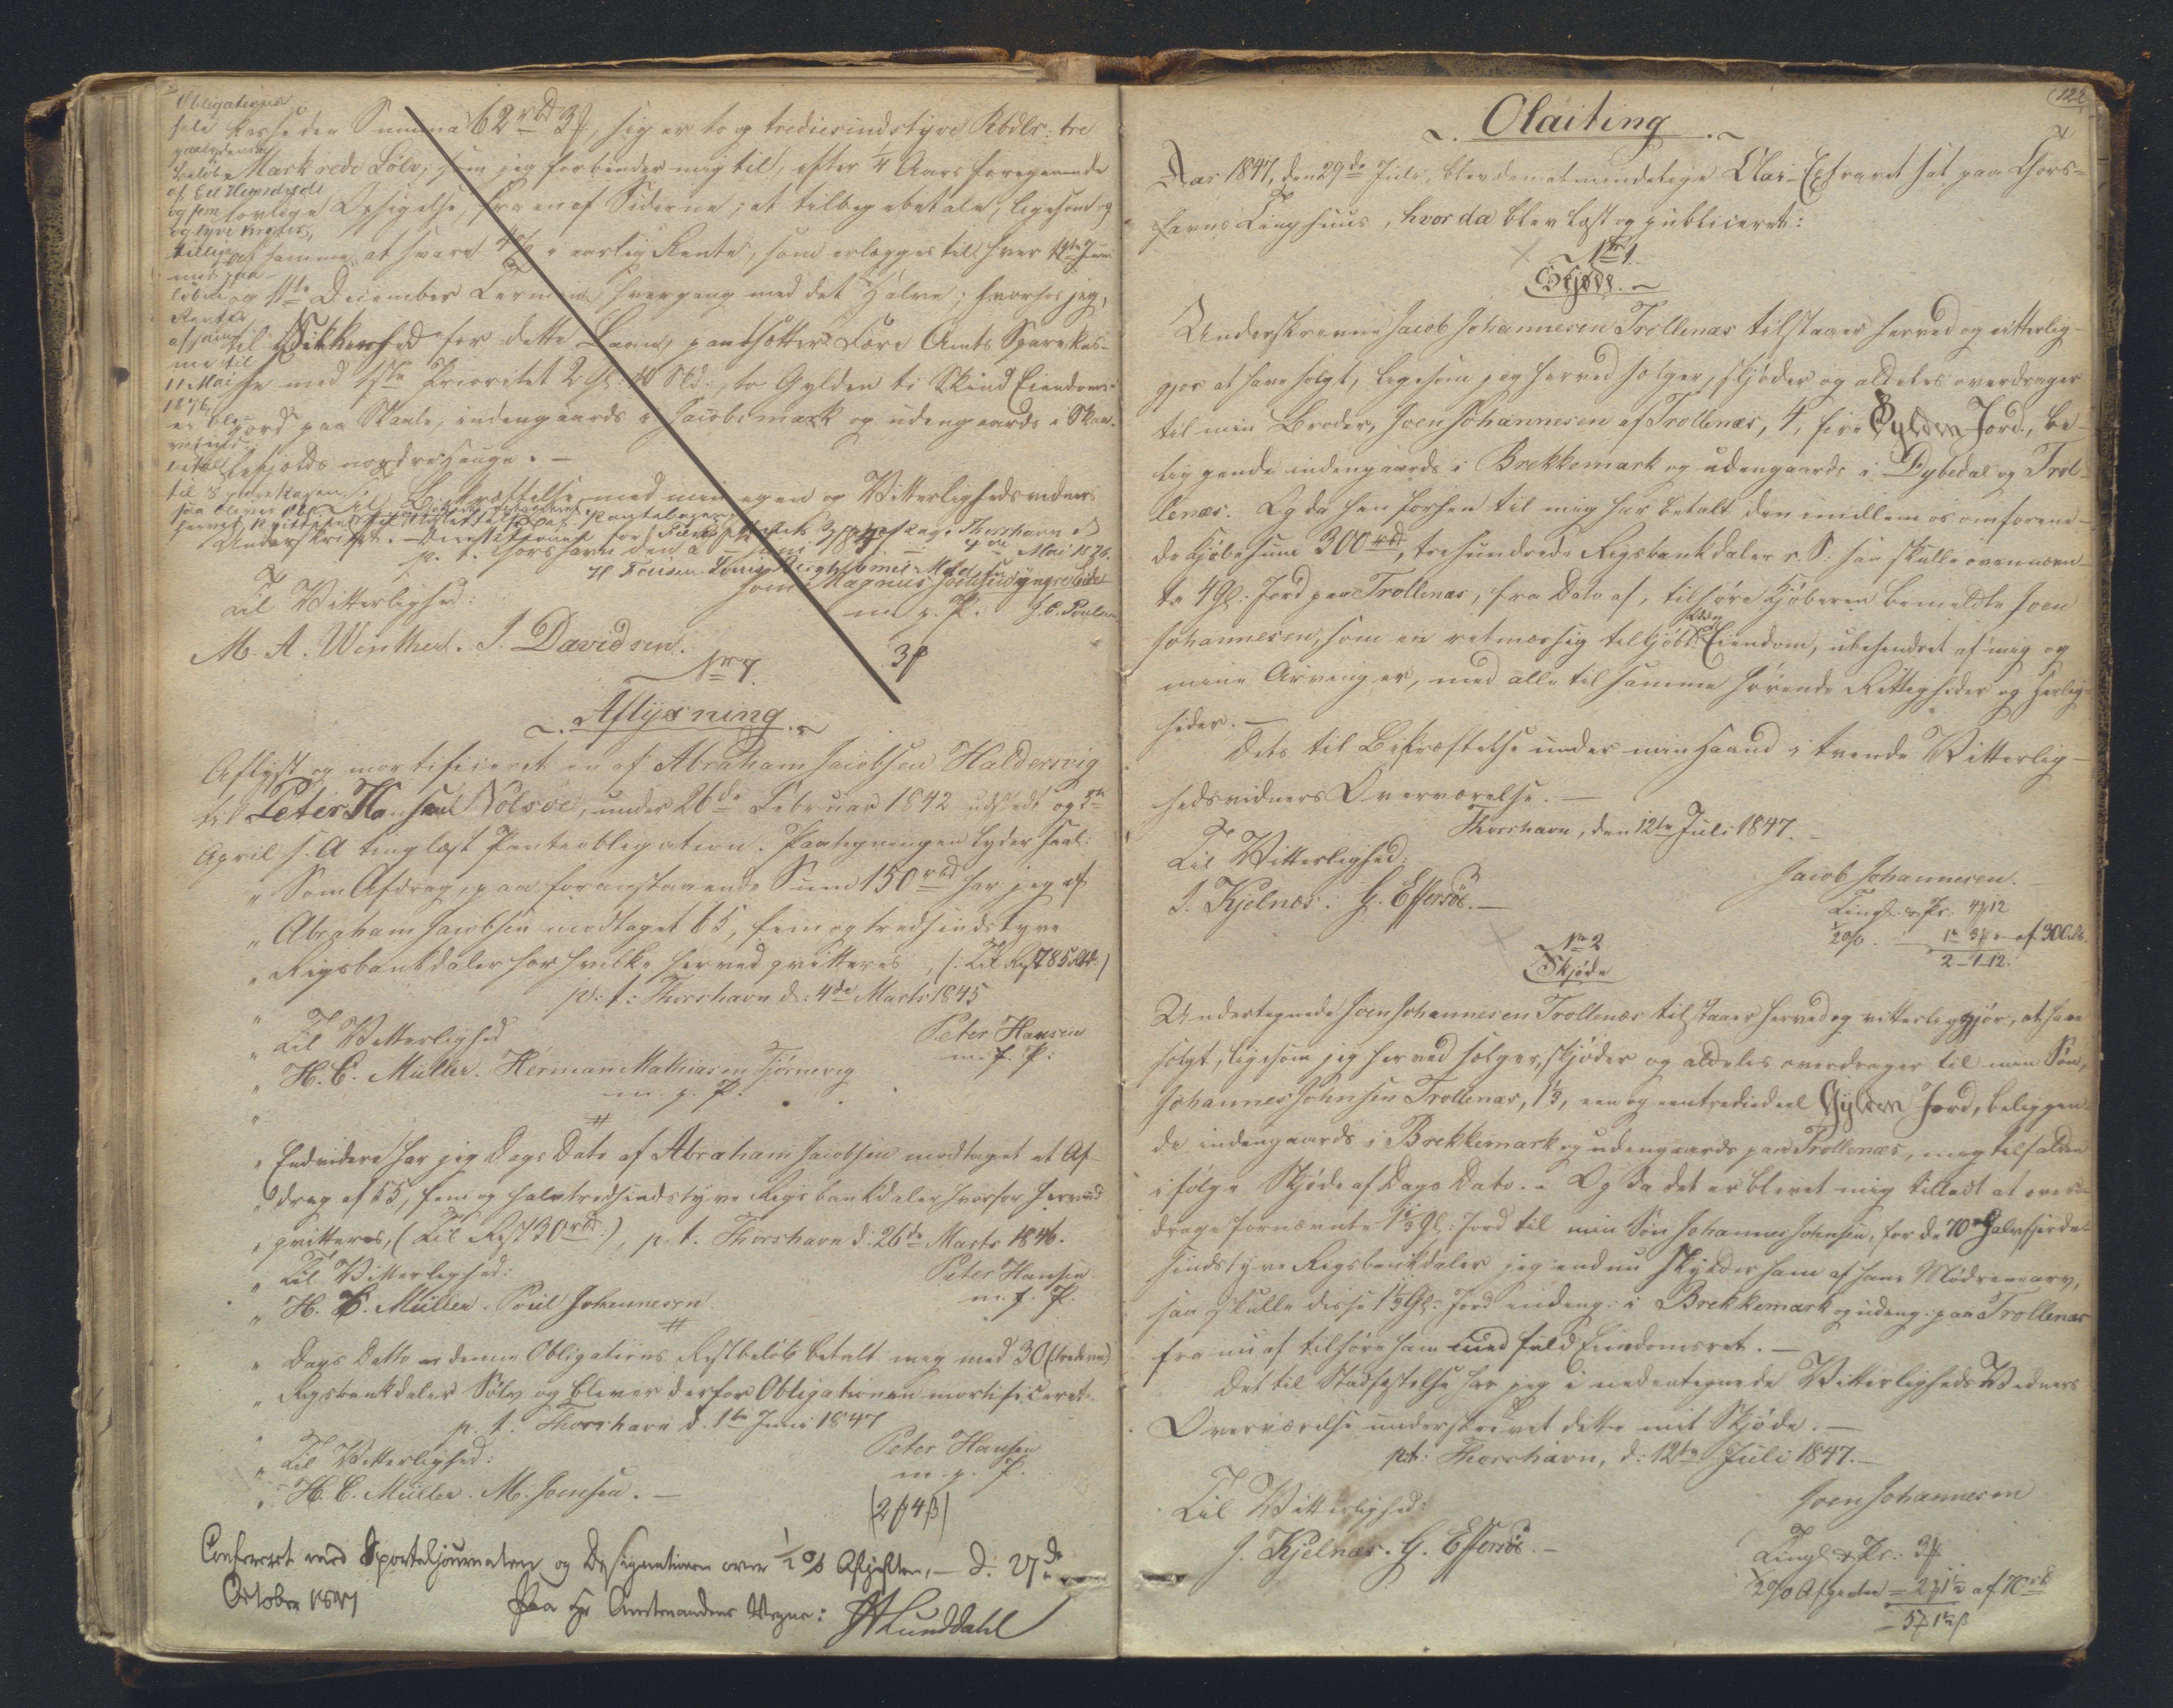 lovlige Opsigelse, fra en af Siderne, at tilbagebetale, ligesom og
af samme at svare 4% i aarlig Rente, som erlægges til hver 11te Juni
og 11te December Termin hvergang med det Halve; hvorhos jeg,
til Sikkerhed for dette Laan, pantsætter Færø Amts Sparekas-
se med 1ste Prioritet 2 Gl: 10 Skd: to Gylden ti Skind Eiendoms-
jord paa Skaale, indengaards i Jacobsmark og udengaards i Skaa-
Til Bekræftelse med min egen og Vitterlighedsvidners
Underskrift.
Til Vitterlighed:
M. A. Winther. J. Davidsen.
No 7.
Aflysning
Aflyst og mortificeret en af Abraham Jacobsen Haldersvig
til Peter Hansen Nolsøe, under 26de Februar 1842 udstedt og 5te
April s. A. tinglæst Panteobligation. Paategningen lyder saal:
" Som Afdrag paa foranstaaende Sum 150 rbd har jeg af
" Abraham Jacobsen modtaget 65, fem og tredsindstyve
" Rigsbankdaler for hvilke herved qvitteres, (: Til Rest 85 Rbd:)
p: t: Thorshavn d: 4de Marts 1845
" Til Vitterlighed
Peter Hansen
" H. C. Müller. Herman Mathiasen Tjørnevig
m. f. P:
m. p. P.
" Endvidere har jeg Dags Dato af Abraham Jacobsen modtaget et Af-
" drag af 55, fem og halvtredsindstyve Rigsbankdaler hvorfor herved
" qvitteres, (Til Rest 30 rbd:), p. t. Thorshavn d: 26de Marts 1846.
" Til Vitterlighed:
Peter Hansen
" H. C. Müller. Poul Johannesen
m. f. P.
" Dags Datto er denne Obligations Restbeløb betalt mig med 30 (tredeve)
" Rigsbankdaler Sølv og bliver derfor Obligationen mortificeret.
p. t. Thorshavn d. 1te Juni 1847
" Til Vitterlighed:
Peter Hansen
m. p. P.
" H. C. Müller. M. Joensen.
Confereret med Sporteljournalen og Designationen over ½ % Afgiften, d. 27de
October 1847
Paa Hr Amtmandens Vegne:
HLunddahl
122
Olaiting
Aar 1847, den 29de Juli, blev den almindelige Olai-Extraret sat paa Thors-
havns Tinghuus, hvor da blev læst og publiceret:
No 1.
Skjøde.
Underskrevne Jacob Johannesen Trollenæs tilstaaer herved og vitterlig-
gjør at have solgt, ligesom jeg herved sælger, skjøder og aldeles overdrager
til min Broder, Joen Johannesen af Trollenæs, 4, fire Gylden Jord, be-
liggende indengaards i Brekkemark og udengaards i Dybedal og Trol-
lenæs. Og da han forhen til mig har betalt den imellem os omforene-
de Kjøbesum 300 rbd, trehundrede Rigsbankdaler r. S: saa skulle ovennævn-
te 4 Gl: Jord paa Trollenæs, fra Dato af, tilhøre Kjøberen bemeldte Joen
Johannesen, som en retmæssig tilkjøbt Eiendom, ubehindret af mig og
mine Arvinger, med alle til samme hørende Rettigheder og Herlig-
heder.
Dets til Bekræftelse under min Haand i tvende Vitterlig-
hedsvidners Overværelse.
Thorshavn, den 12te Juli 1847.
Til Vitterlighed:
Jacob Johannesen.
J. Kjelnæs. G. Effersøe.
af 300 rbd.
2-1-12.
No 2
Skjøde
Undertegnede Joen Johannesen Trollenæs tilstaaer herved og vitterliggjør, at have
solgt, ligesom jeg herved sælger, skjøder og aldeles overdrager til min Søn,
Johannes Johnsen Trollenæs, 1⅓, een og eentrediedeel Gylden Jord, beliggen-
de indengaards i Brekkemark og udengaards paa Trollenæs, mig tilfalden
ifølge Skjøde af Dags Dato. Og da det er blevet mig tilladt at over-
drage fornævnte 1⅓ Gl: Jord til min Søn Johannes Johnsen, for de 70 Halvfjerd-
sindstyve Rigsbankdaler jeg endnu skylder ham af hans Mødrenearv,
saa skulle disse 1⅓ Gl: Jord indeng: i Brekkemark og udeng: paa Trollenæs
fra nu af tilhøre ham med fuld Eiendomsret.
Det til Stadfæstelse har jeg i nedentegnede Vitterligheds Vidners
Overværelse underskrevet dette mit Skjøde.
p.t: Thorshavn, d: 12te Juli 1847.
Til Vitterlighed:
Joen Johannesen
J. Kjelnæs. G. Effersøe.